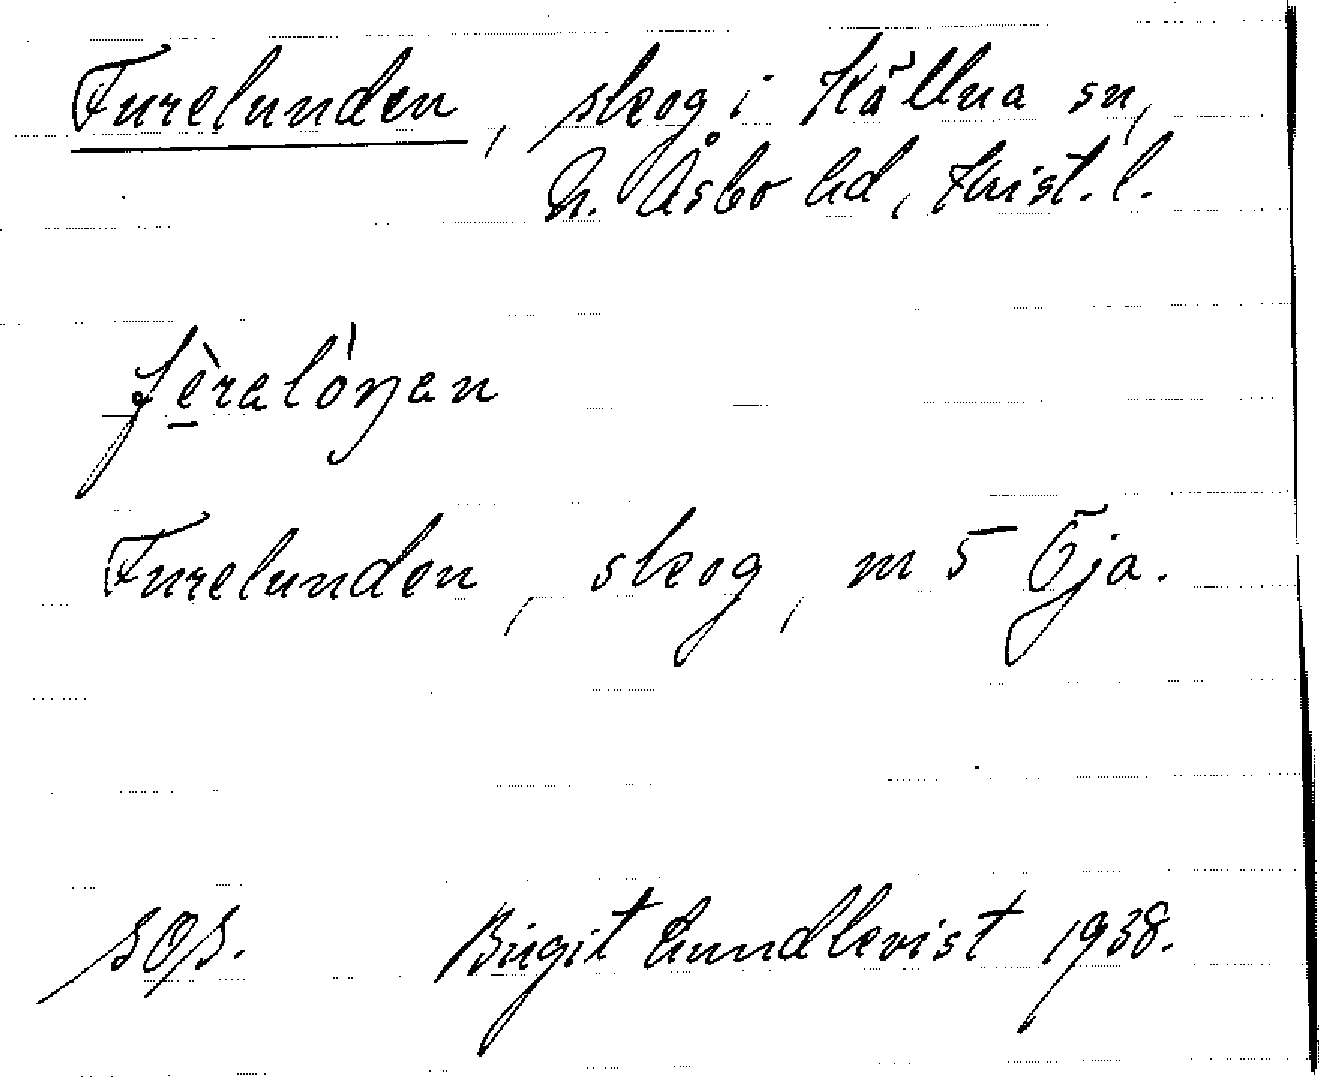 Furelunden, skog i Källna sn,
N. Åsbo hd, Krist. l.
Furelunden, skog, m 5 Öja.
sOs. Birgit Lundkvist 1938.